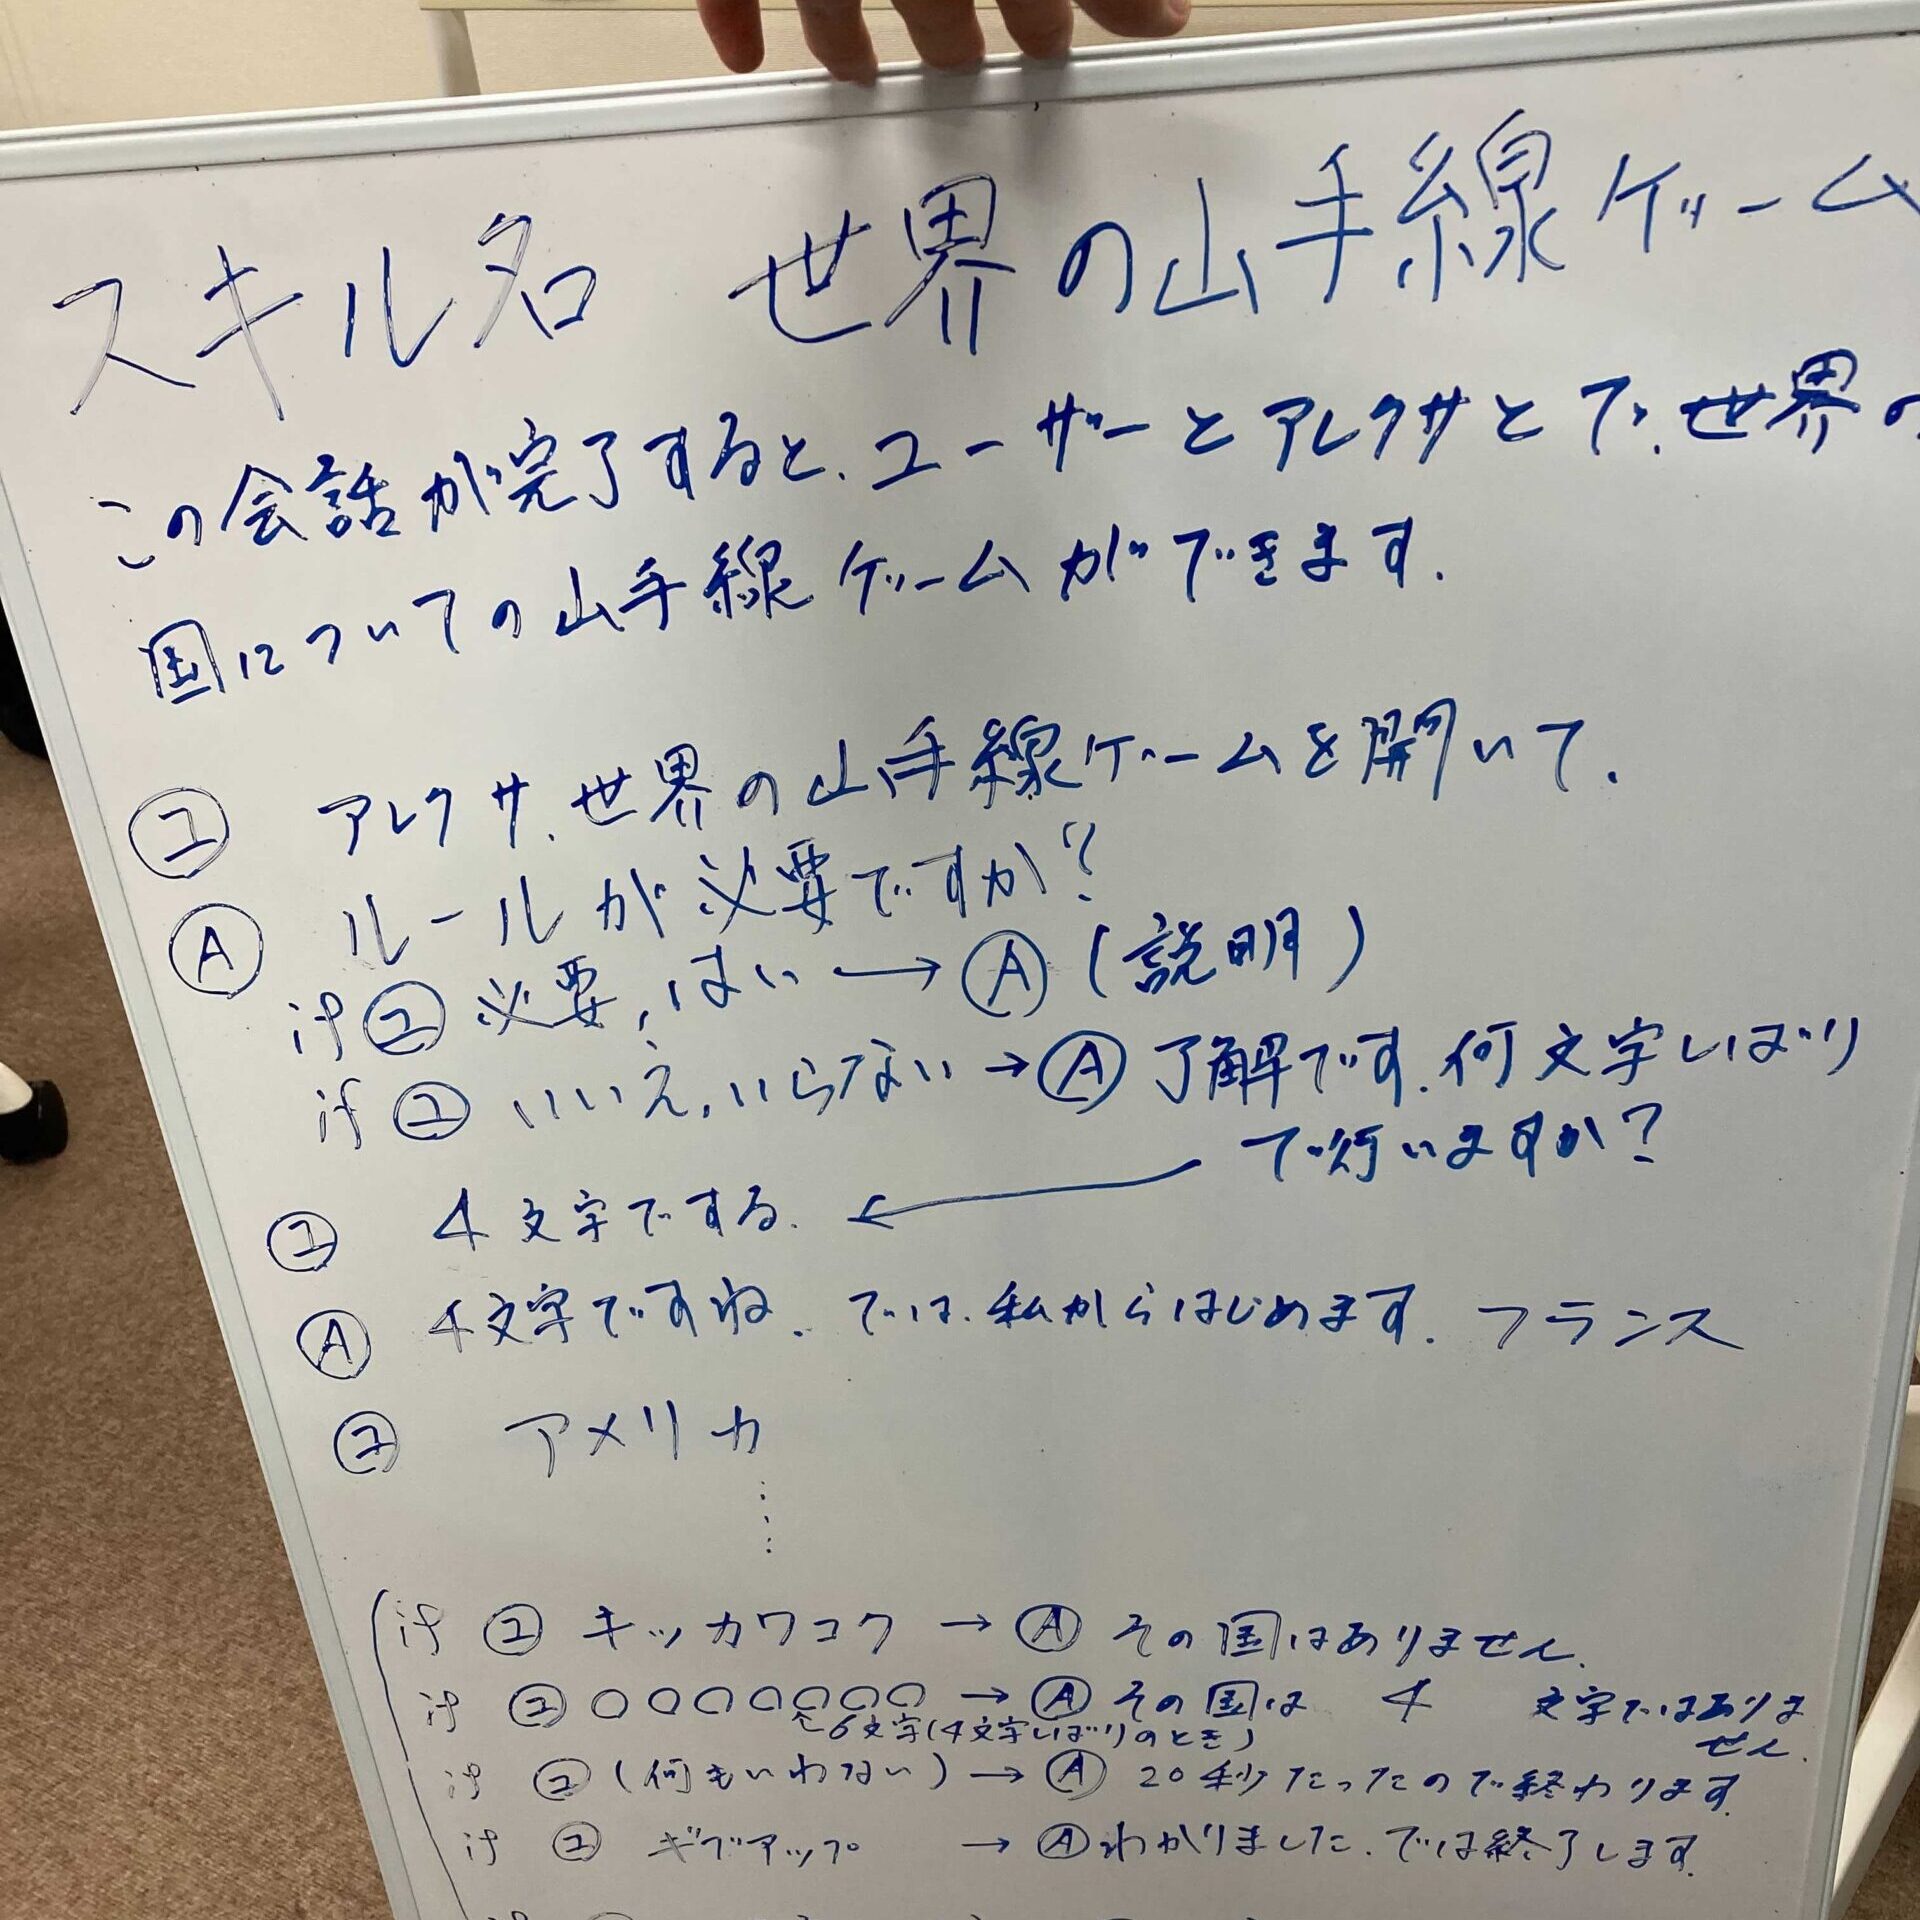 スキル名 世界の山手線ゲーム
この会話が完了すると、ユーザーとアレクサとで、世界の
国についての山手線ゲームができます.
ユ アレクサ、世界の山手線ゲームを開いて.
A ルールが必要ですか?
if ユ 必要、はい → A (説明)
if ユ いいえ、いらない → A 了解です.何文字しばり
で行いますか?
ユ 4文字でする.
A 4文字ですね.では、私からはじめます.フランス
ユ アメリカ
⋮
if ユ キッカワコク → A その国はありません.
if ユ ○○○○○○○ → A その国は 4 文字ではありま
せん.
↑6文字(4文字しばりのとき)
if ユ (何もいわない) → A 20秒たったので終わります.
if ユ ギブアップ → A わかりました.では終了します.
if